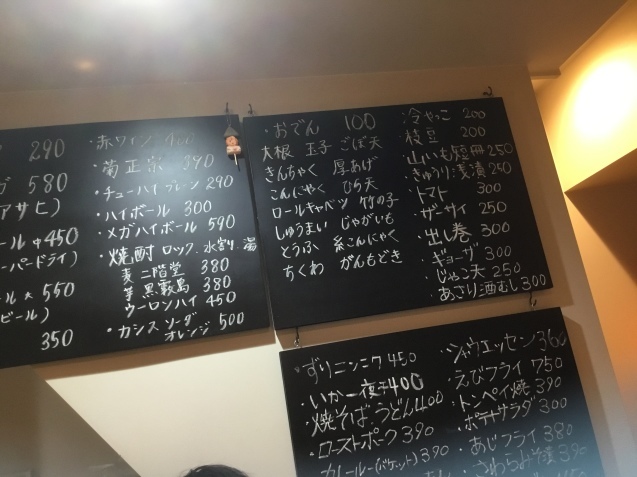 290
580
アサヒ)
ール中450
ーパードライ)
ール大 550
ビール)
350
・赤ワイン 400
・菊正宗 390
・チューハイ プレーン 290
・ハイボール 300
・メガハイボール 590
・焼酎 ロック、水割り、湯
麦 二階堂 380
芋 黒霧島 380
ウーロンハイ 450
・カシス ソーダ オレンジ 500
・おでん 100
大根 玉子 ごぼ天
きんちゃく 厚あげ
こんにゃく ひら天
ロールキャベツ 竹の子
しゅうまい じゃがいも
とうふ 糸こんにゃく
ちくわ がんもどき
・冷やっこ 200
・枝豆 200
・山いも短冊 250
・きゅうり浅漬 250
・トマト 300
・ザーサイ 250
・出し巻 300
・ギョーザ 300
・じゃこ天 250
・あさり酒むし 300
・ずりニンニク 450
・いか一夜干 400
・焼そば、うどん 400
・ローストポーク 390
・カレールー(バケット) 390
・シャウエッセン 360
・えびフライ 750
・トンペイ焼 390
・ポテトサラダ 300
・あじフライ 380